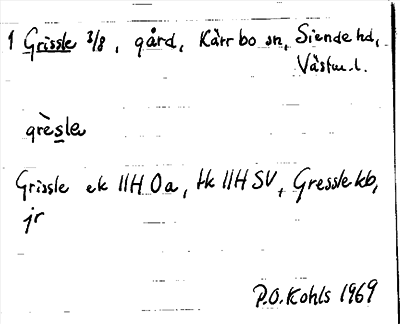 1 Grissle 3/8, gård, Kärrbo sn, Siende hd,
Västm. l.
grèsle
Grissle ek 11H 0a, tk 11H SV, Gressle kb,
jr
P.O. Kohls 1969